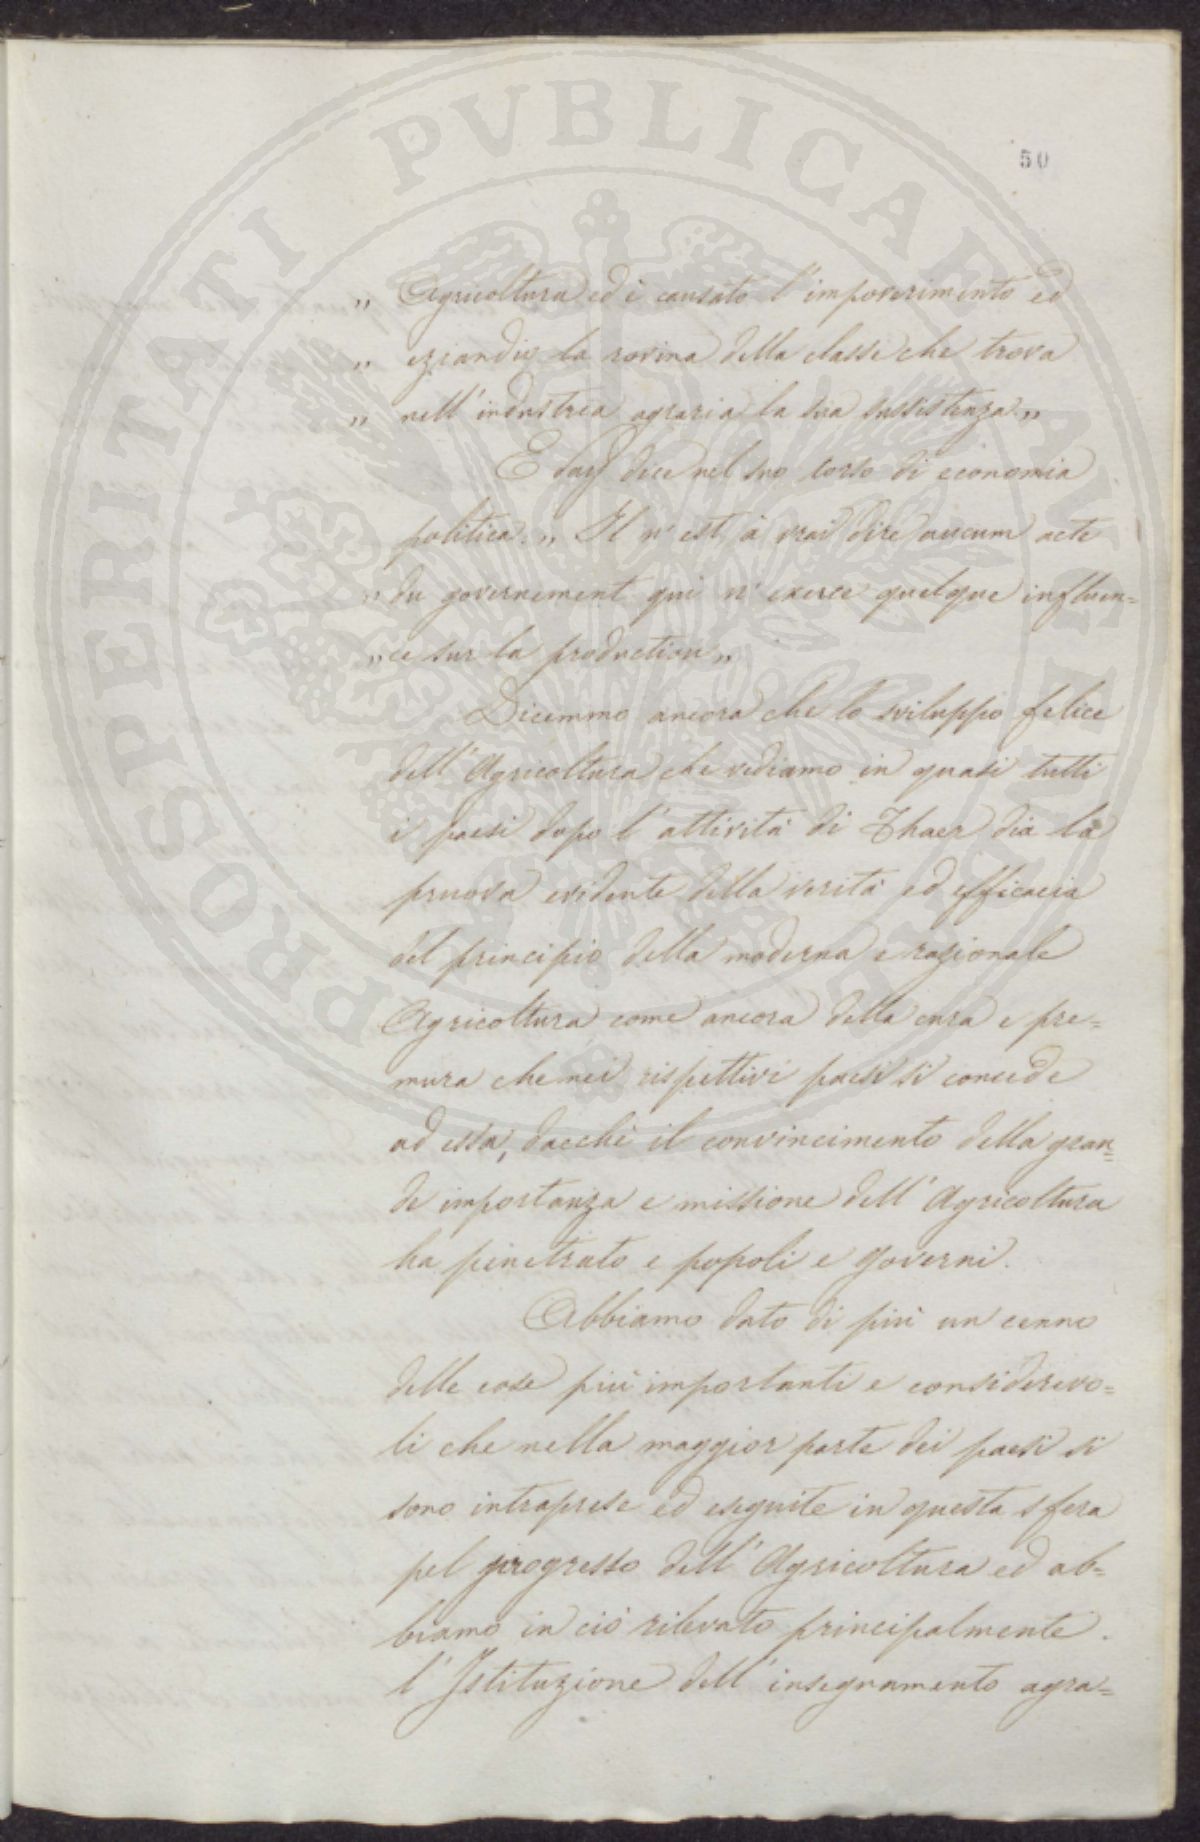 50
„ Agricoltura ed è causato l'impoverimento ed
„ eziandio la rovina della classe che trova
„ nell'industria agraria la sua sussistenza.„
E Say dice nel suo corso di economia
politica. „ Il n'est à vrai dire aucum acte
„ du governement qui n'exerce quelque influen=
„ ce sur la production„
Dicemmo ancora che lo sviluppo felice
dell'Agricoltura che vediamo in quasi tutti
i paesi dopo l'attività di Thaer dia la
pruova evidente della verità ed efficacia
del principio della moderna e razionale
Agricoltura come ancora della cura e pre=
mura che nei rispettivi paesi si concede
ad essa, dacchè il convincimento della gran=
de importanza e missione dell'Agricoltura
ha penetrato e popoli e governi.
Abbiamo dato di più un cenno
delle cose più importanti e considerevo=
li che nella maggior parte dei paesi si
sono intraprese ed eseguite in questa sfera
pel progresso dell'Agricoltura ed ab=
biamo in ciò rilevato principalmente
l'Istituzione dell'insegnamento agra=
PROSPERITATI PUBLICAE AUGENDAE